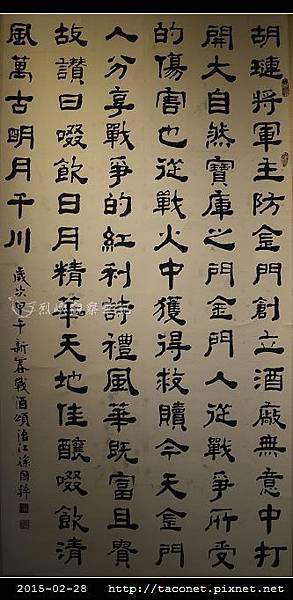 胡璉將軍主防金門創立酒廠無意中打
開大自然寶庫之門金門人從戰爭所受
的傷害也從戰火中獲得救贖今天金門
人分享戰爭的紅利詩禮風華既富且貴
故讚曰啜飲日月精華天地佳釀啜飲清
風萬古明月千川
歲次甲午新春戰酒頌浯江孫國粹
2015-02-28 http://taconet.pixnet.net